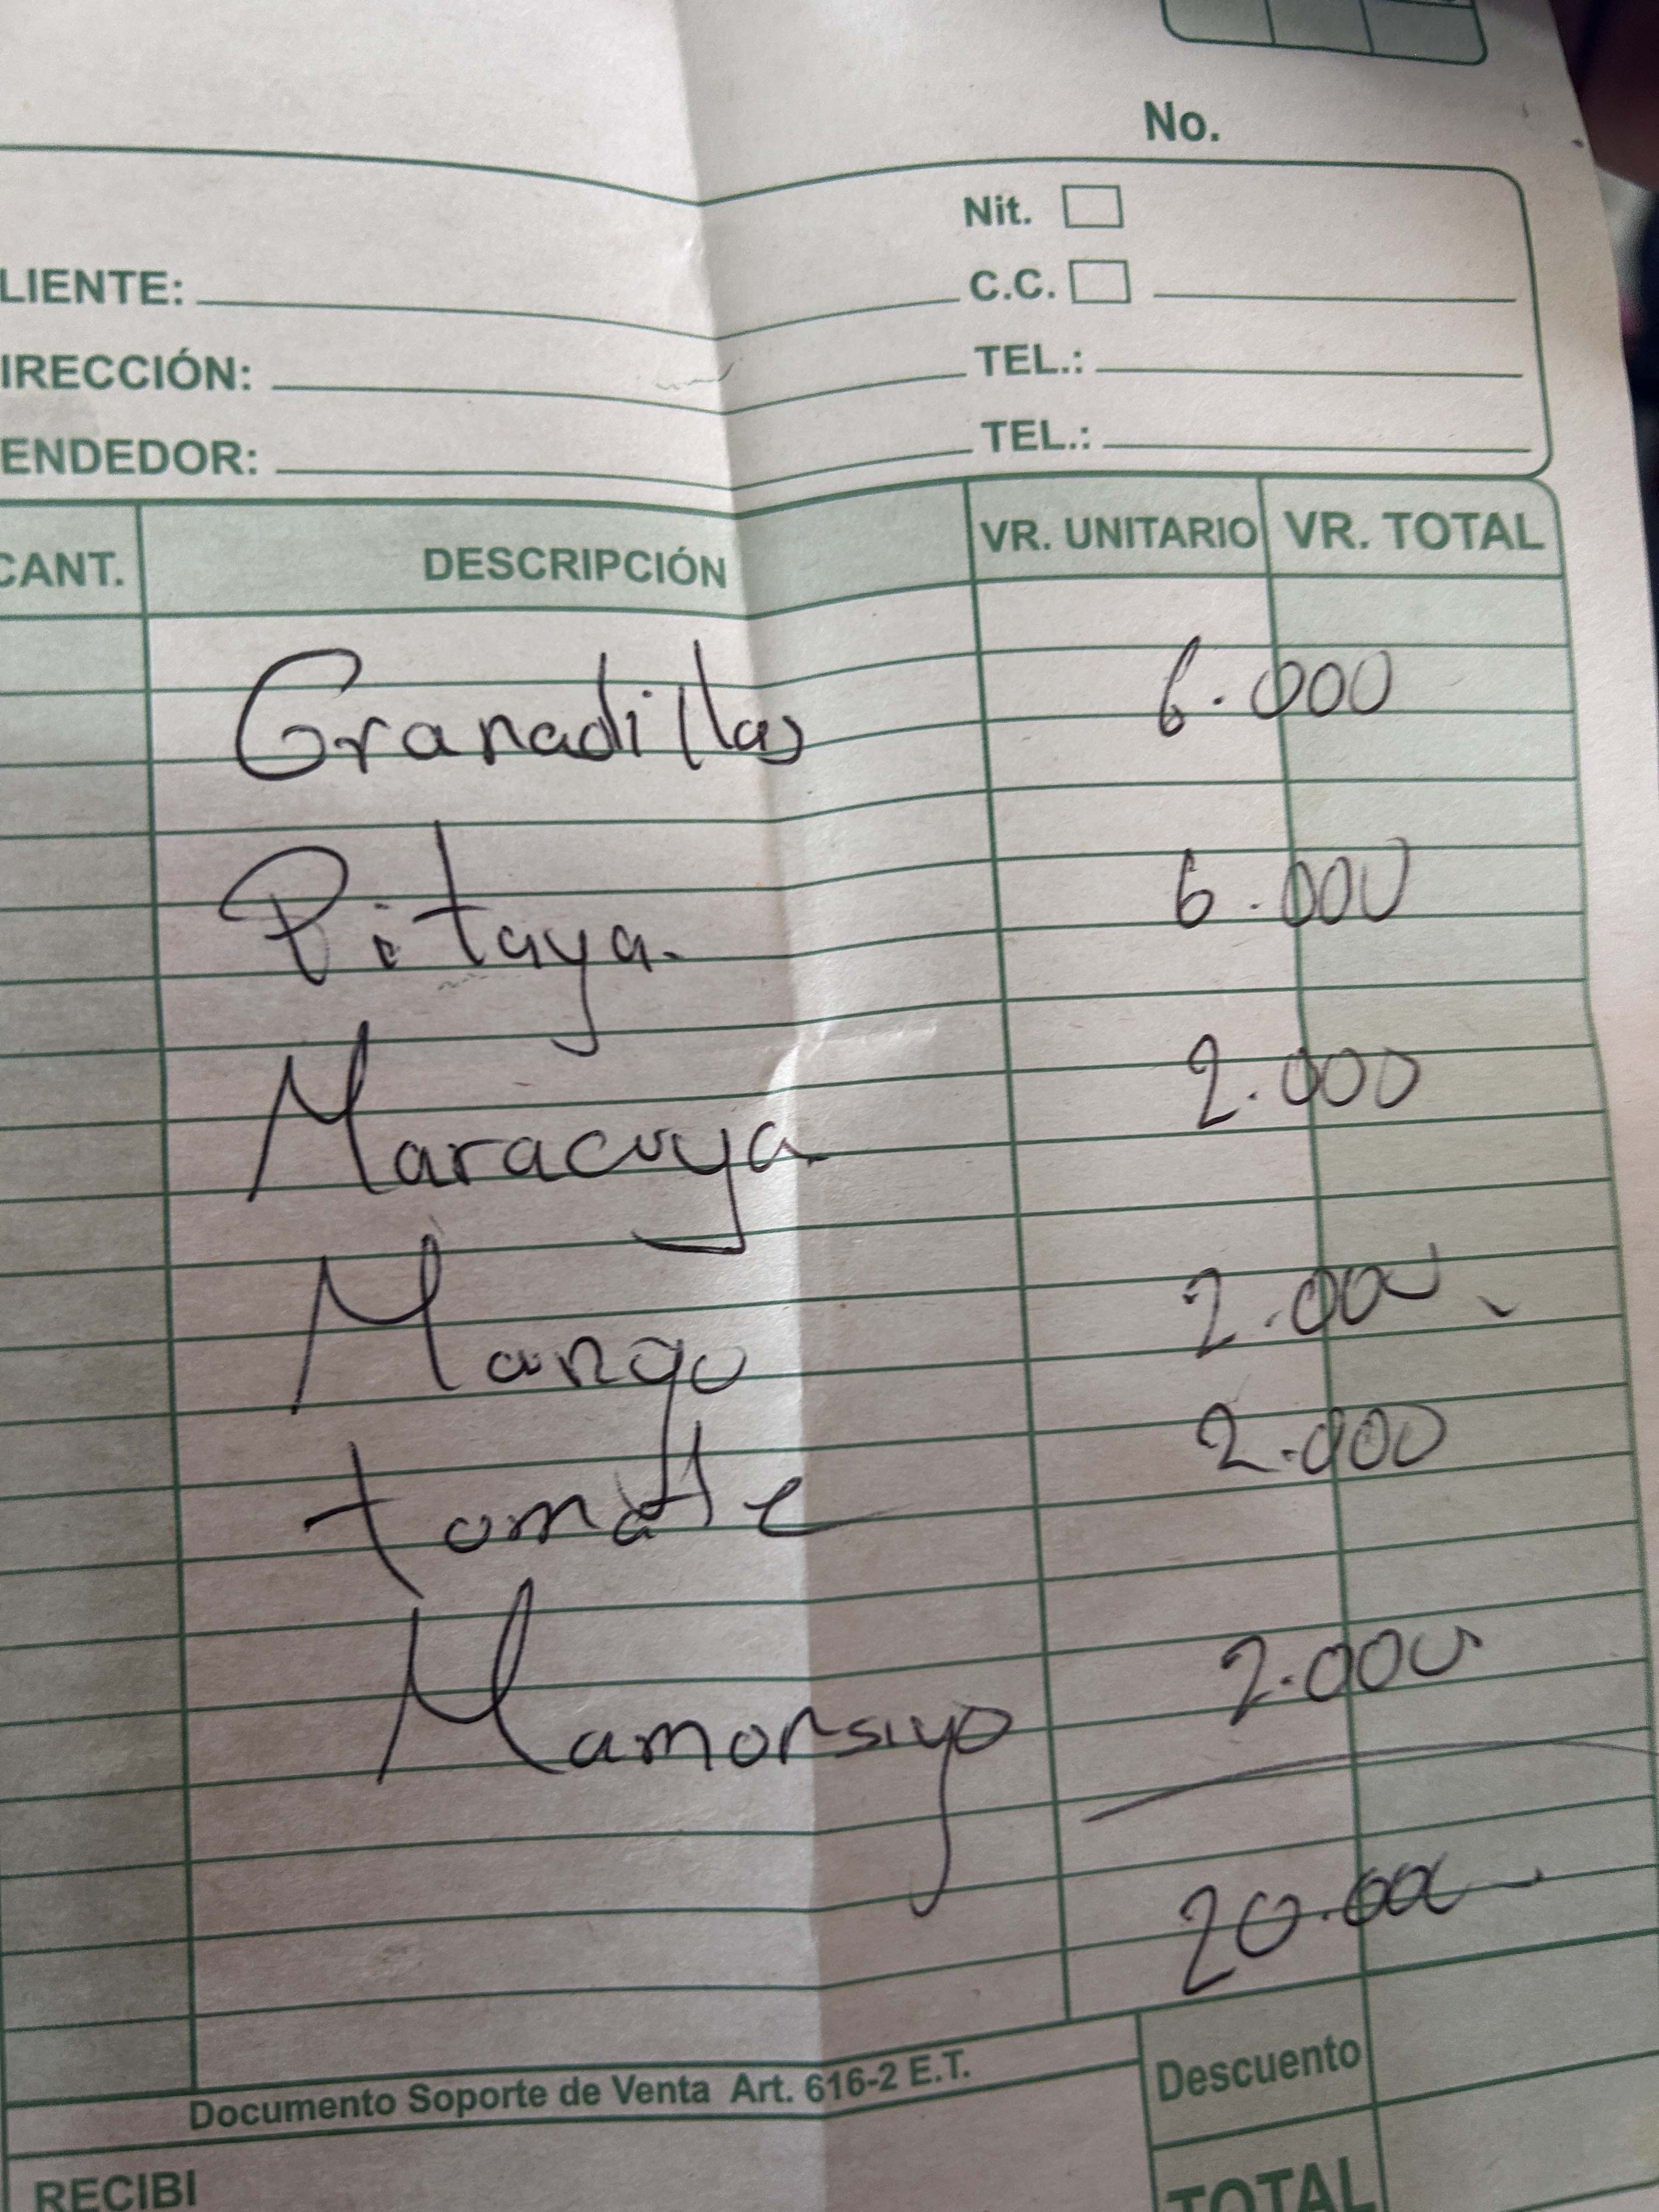 No.
Nit.
LIENTE: C.C.
IRECCIÓN: TEL.:
ENDEDOR: TEL.:
CANT. DESCRIPCIÓN VR. UNITARIO VR. TOTAL
Granadillas 6.000
Pitaya. 6.000
Maracuya 2.000
Mango 2.000
tomatte 2.000
Mamonsiyo 2.000
20.000
Documento Soporte de Venta Art. 616-2 E.T.
Descuento
RECIBI
TOTAL